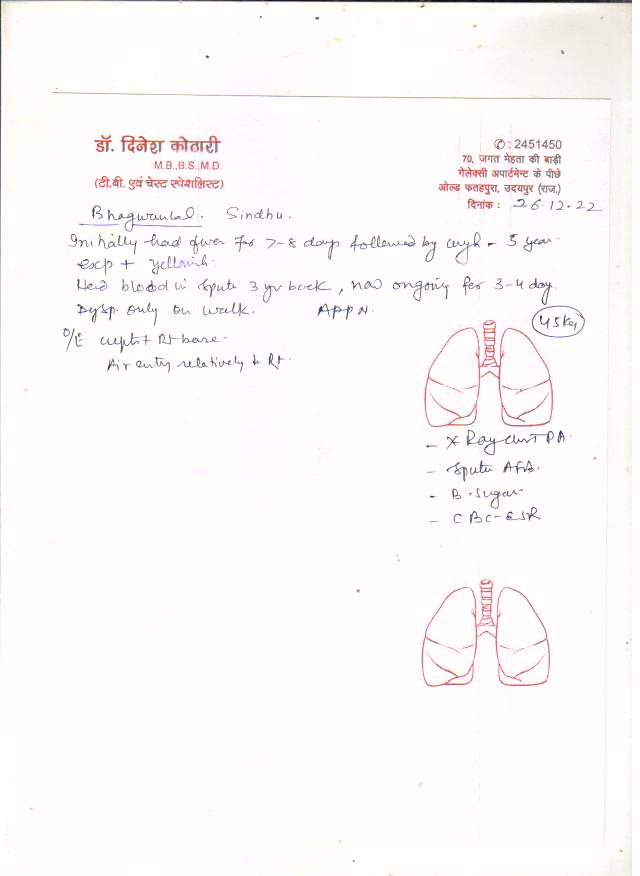 डॉ. दिनेश कोठारी
M.B.,B.S.,M.D.
(टी.बी. एवं चेस्ट स्पेशलिस्ट)
✆ : 2451450
70, जगत मेहता की बाड़ी
गेलेक्सी अपार्टमेन्ट के पीछे
ओल्ड फतहपुरा, उदयपुर (राज.)
दिनांक : 26.12.22
Bhagwanlal. Sindhu.
Initially had fever for 7-8 days followed by cough - 5 year.
exp + yellowish.
Had blood in sputu 3 yr back, now ongoing for 3-4 day.
Dysp. only on walk. APP N.
45kg
O/E crepts + Rt base.
Air entry relatively ↓ Rt.
- X Ray chest PA.
- Sputu AFB.
- B. Sugar
- CBC-ESR